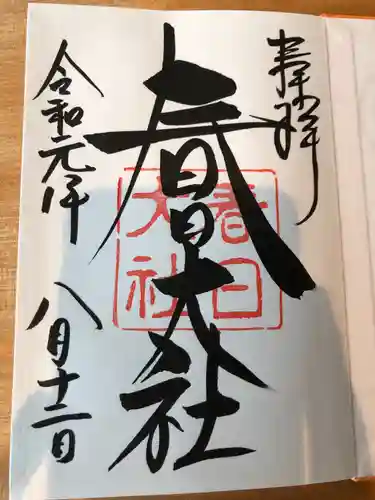 奉拝
春日大社
春日
大社
令和元年
八月十二日